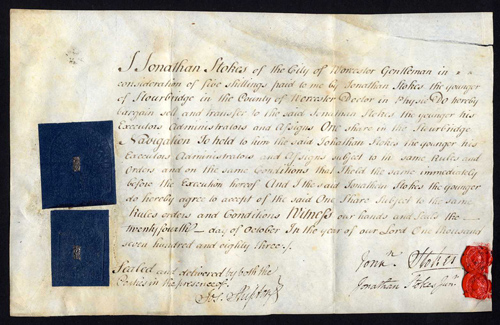 I Jonathan Stokes of the City of Worcester Gentleman in
consideration of five shillings paid to me by Jonathan Stokes the younger
of Stourbridge in the County of Worcester Doctor in Physic Do hereby
bargain sell and transfer to the said Jonathan Stokes the younger his
Executors Administrators and Assigns One share in the Stourbridge
Navigation To hold to him the said Jonathan Stokes the younger his
Executors Administrators and Assigns subject to the same Rules and
Orders and on the same Conditions that I held the same immediately
before the Execution hereof And I the said Jonathan Stokes the younger
do hereby agree to accept of the said One Share Subject to the same
Rules orders and Conditions Witness our hands and seals the
twenty fourth day of October In the year of our Lord One thousand
seven hundred and eighty three
Sealed and delivered by both the
Parties in the presence of
Jonn. Stokes
Jonathan Stokes Junr.